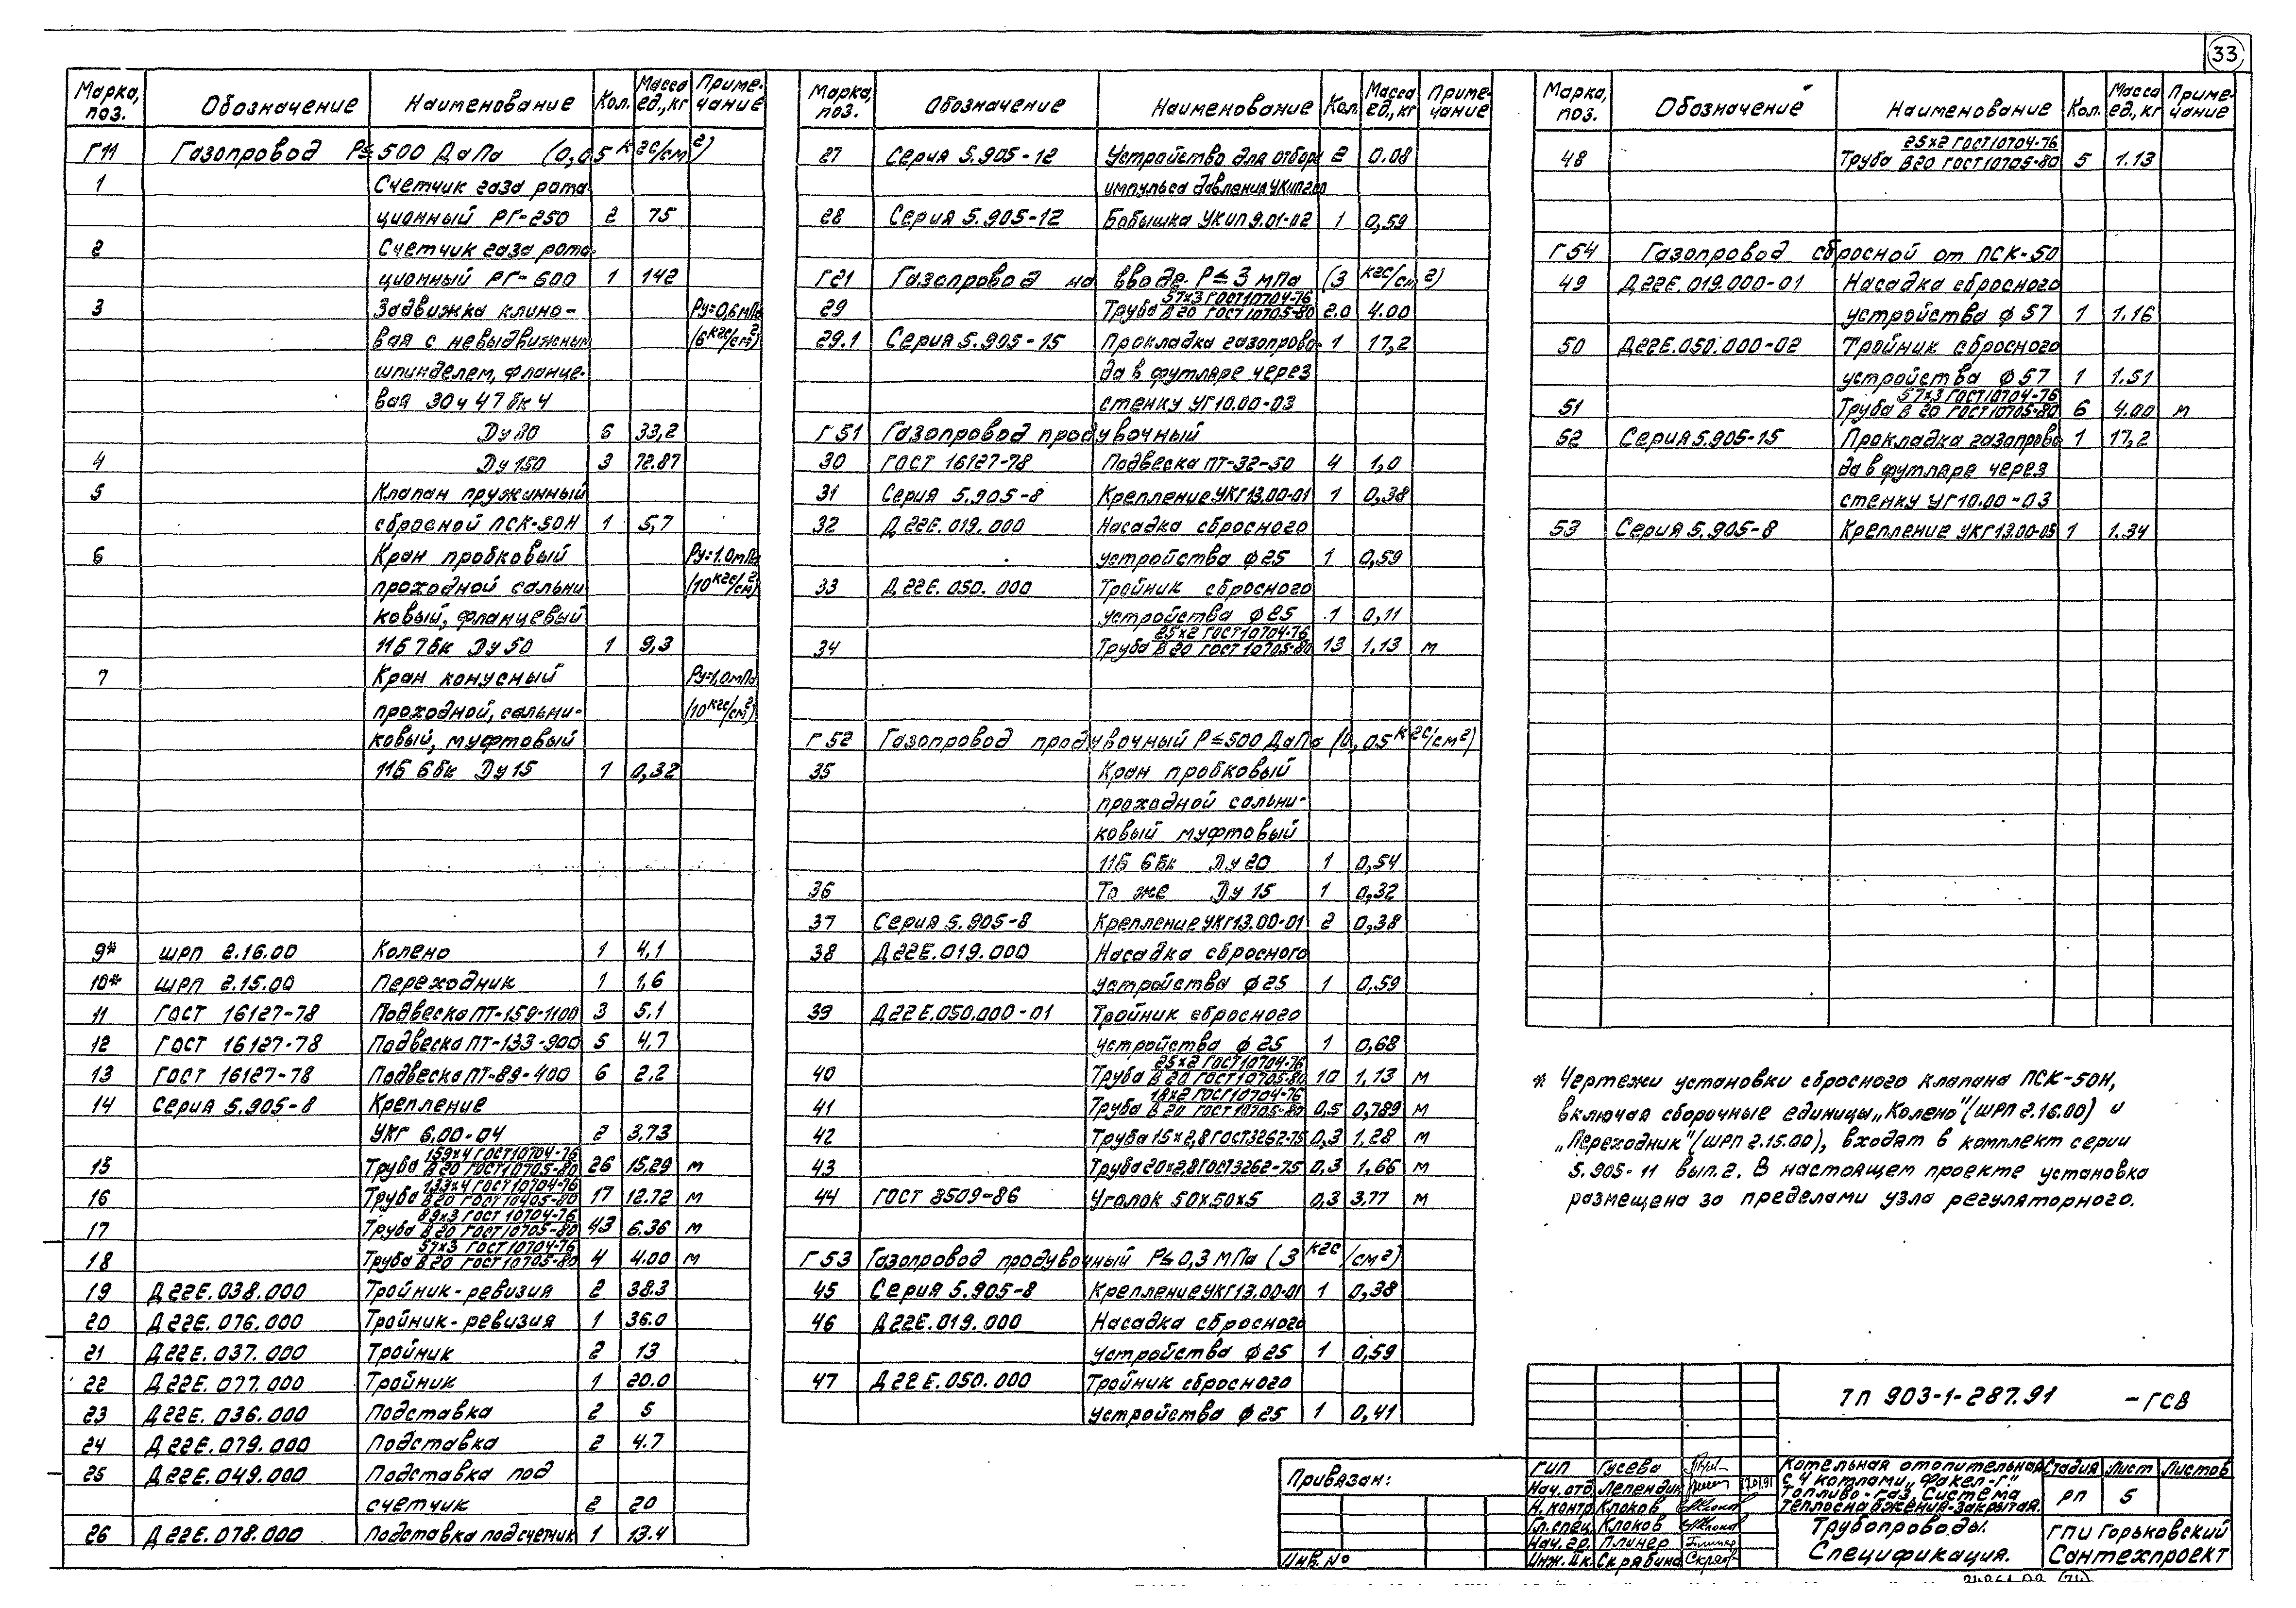 33
Марка, поз. Обозначение Наименование Кол. Масса ед., кг Приме-чание
Г11 Газопровод P≤500 ДаПа (0,05 кгс/см2)
1 Счетчик газа рота-
ционный РГ-250 2 75
2 Счетчик газа рота-
ционный РГ-600 1 142
3 Задвижка клино- Ру=0,6мПа
вая с невыдвижным (6кгс/см2)
шпинделем, фланце-
вая 30ч 47бк 4
Ду 80 6 33,2
4 Ду 150 3 72.87
5 Клапан пружинный
сбросной ПСК-50Н 1 5,7
6 Кран пробковый Ру=1.0мПа
проходной сальни (10кгс/см2)
ковый, фланцевый
11Б 7бк Ду 50 1 9,3
7 Кран конусный Ру=1,0мПа
проходной, сальни- (10кгс/см2)
ковый, муфтовый
11Б 6бк Ду 15 1 0,32
9* ШРП 2.16.00 Колено 1 4,1
10* ШРП 2.15.00 Переходник 1 1,6
11 ГОСТ 16127-78 Подвеска ПТ-159-1100 3 5.1
12 ГОСТ 16127-78 Подвеска ПТ-133-900 5 4,7
13 ГОСТ 16127-78 Подвеска ПТ-89-400 6 2.2
14 Серия 5.905-8 Крепление
УКГ 6.00-04 2 3.73
15 Труба 159х4 ГОСТ10704-76 / В 20 ГОСТ10705-80 26 15,29 м
16 Труба 133х4 ГОСТ10704-76 / В 20 ГОСТ10405-80 17 12.72 м
17 Труба 89х3 ГОСТ 10704-76 / В 20 ГОСТ10705-80 43 6.36 м
18 Труба 57х3 ГОСТ10704-76 / В 20 ГОСТ10705-80 4 4.00 м
19 Д22Е.038.000 Тройник-ревизия 2 38.3
20 Д22Е.076.000 Тройник-ревизия 1 36.0
21 Д22Е.037.000 Тройник 2 13
22 Д22Е.077.000 Тройник 1 20.0
23 Д22Е.036.000 Подставка 2 5
24 Д22Е.079.000 Подставка 2 4.7
25 Д22Е.049.000 Подставка под
счетчик 2 20
26 Д22Е.078.000 Подставка под счетчик 1 13.4
Марка, поз. Обозначение Наименование Кол. Масса ед., кг Приме-чание
27 Серия 5.905-12 Устройство для отбора 2 0.08
импульса давления УКИП2.00
28 Серия 5.905-12 Бобышка УКИП 9.01-02 1 0,59
Г21 Газопровод на вводе P≤3 мПа (3 кгс/см2)
29 Труба 57х3 ГОСТ10704-76 / В 20 ГОСТ10705-80 2.0 4.00
29.1 Серия 5.905-15 Прокладка газопрово- 1 17,2
да в футляре через
стенку УГ10.00-03
Г51 Газопровод продувочный
30 ГОСТ 16127-78 Подвеска ПТ-32-50 4 1,0
31 Серия 5.905-8 Крепление УКГ13.00-01 1 0,38
32 Д22Е.019.000 Насадка сбросного
устройства ф25 1 0,59
33 Д22Е.050.000 Тройник сбросного
устройства ф25 1 0,11
34 Труба 25х2 ГОСТ10704-76 / В 20 ГОСТ10705-80 13 1,13 м
Г52 Газопровод продувочный P≤500 ДаПа (0,05кгс/см2)
35 Кран пробковый
проходной сальни-
ковый муфтовый
11Б 6бк Ду 20 1 0,54
36 То же Ду 15 1 0,32
37 Серия 5.905-8 Крепление УКГ13.00-01 2 0,38
38 Д22Е.019.000 Насадка сбросного
устройства ф25 1 0,59
39 Д22Е.050.000-01 Тройник сбросного
устройства ф25 1 0,68
40 Труба 25х2 ГОСТ10704-76 / В 20 ГОСТ10705-80 10 1,13 м
41 Труба 18х2 ГОСТ10704-76 / В 20 ГОСТ10705-80 0,5 0,789 м
42 Труба 15х2,8 ГОСТ3262-75 0,3 1,28 м
43 Труба 20х2,8 ГОСТ3262-75 0,3 1,66 м
44 ГОСТ 8509-86 Уголок 50х50х5 0,3 3,77 м
Г53 Газопровод продувочный P≤0,3 МПа (3 кгс/см2)
45 Серия 5.905-8 Крепление УКГ13.00-01 1 0,38
46 Д22Е.019.000 Насадка сбросного
устройства ф25 1 0,59
47 Д22Е.050.000 Тройник сбросного
устройства ф25 1 0,41
Марка, поз. Обозначение Наименование Кол. Масса ед., кг Приме-чание
48 Труба 25х2 ГОСТ10704-76 / В 20 ГОСТ10705-80 5 1.13
Г54 Газопровод сбросной от ПСК-50
49 Д22Е.019.000-01 Насадка сбросного
устройства ф57 1 1.16
50 Д22Е.050.000-02 Тройник сбросного
устройства ф57 1 1.51
51 Труба 57х3 ГОСТ10704-76 / В 20 ГОСТ10705-80 6 4.00 м
52 Серия 5.905-15 Прокладка газопрово 1 17,2
да в футляре через
стенку УГ10.00-03
53 Серия 5.905-8 Крепление УКГ13.00-05 1 1.34
* Чертежи установки сбросного клапана ПСК-50Н,
включая сборочные единицы „Колено" (ШРП 2.16.00) и
„Переходник" (ШРП 2.15.00), входят в комплект серии
5.905-11 вып.2. В настоящем проекте установка
размещена за пределами узла регуляторного.
Привязан:
Инв. №
ТП 903-1-287.91 -ГСВ
ГИП Гусева
Нач. отд Лепендин
Н.контр Клоков
Гл.спец. Клоков
Нач.гр. Плинер
Инж. IIк. Скрябина
Котельная отопительная
с 4 котлами „Факел-Г".
Топливо-газ. Система
теплоснабжения-закрытая.
Стадия Лист Листов
РП 5
Трубопроводы.
Спецификация.
ГПИ Горьковский
Сантехпроект